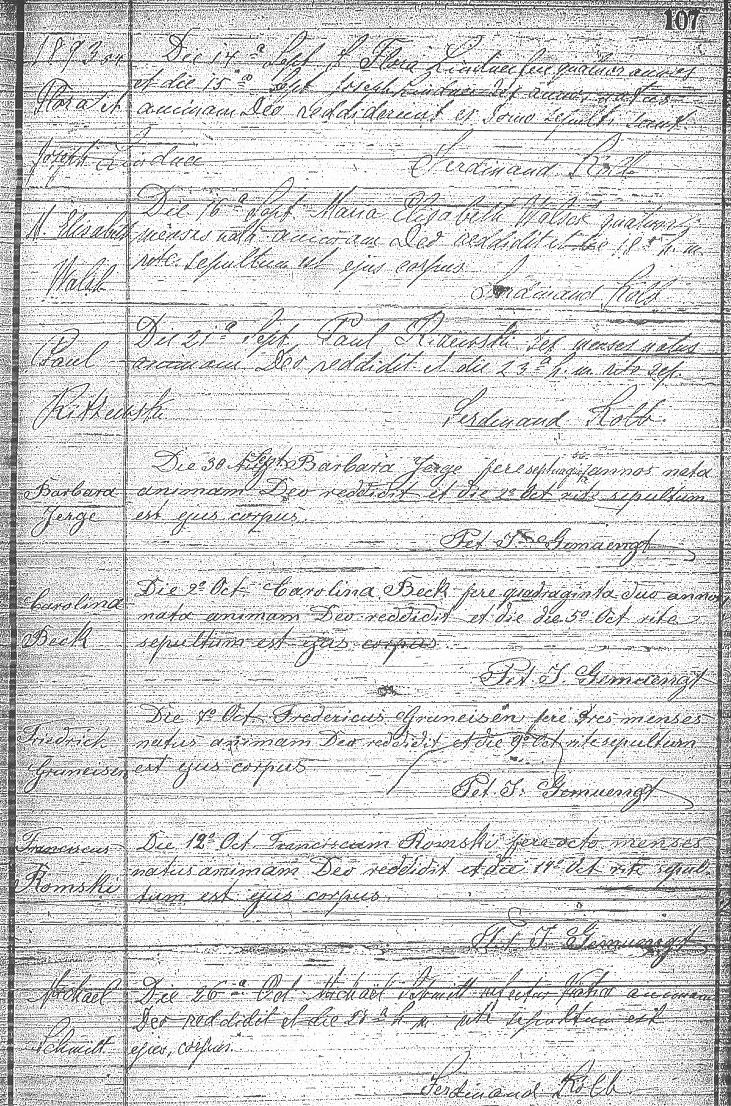 107
1893
Die 14ª Sept Flora Linduer fere quatuor annos
et die 15ª Sept Joseph annos natus
Flora et
animam Deo reddiderunt et sepulti sunt.
Joseph Linduer
Ferdinand Kolb
Die 16ª Sept Maria Elisabeth Walsh quatuor
M. Elisabeth
menses nata animam Deo reddidit et die 18ª h. m.
rite sepultum est ejus corpus
Walsh
Ferdinand Kolb
Die 21ª Sept. Paul sex menses natus
Paul
animam Deo reddidit et die 23ª h. m. rite sep.
Ferdinand Kolb.
Die 30 Sept Barbara Jerge fere annos nata
Barbara
animam Deo reddidit et die 2ª Oct rite sepultum
Jerge
est ejus corpus.
Pet. J. Gemuengt
Die 2ª Oct Carolina Beck fere quadraginta duo annos
Carolina
nata animam Deo reddidit et die die 5ª Oct rite
Beck
sepultum est ejus corpus.
Pet. J. Gemuengt
Die 7ª Oct Fredericus Gruneisen fere tres menses
Friedrich
natus animam Deo reddidit et die 9ª Oct rite sepultum
Gruneisen
est ejus corpus
Pet. J. Gemuengt
Franciscus
Die 12ª Oct Franciscum Romski fere octo menses
natus animam Deo reddidit et die 14ª Oct rite sepul-
Romski
tum est ejus corpus.
Pet. J. Gemuengt
Michael
Die 26ª Oct Michael Schmitt animam
Deo reddidit et die h m rite sepultum est
Schmitt
ejus corpus.
Ferdinand Kolb.